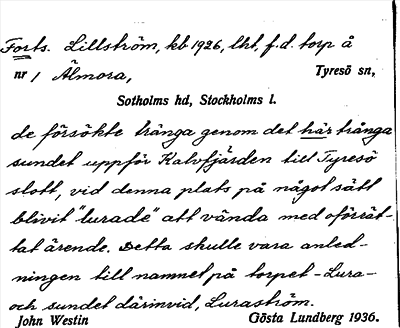 Forts. Lillström, kb 1926, lht, f.d. torp å
nr 1 Älmora, Tyresö sn,
Sotholms hd, Stockholms l.
de försökte tränga genom det här trånga
sundet uppför Kalvfjärden till Tyresö
slott, vid denna plats på något sätt
blivit "lurade" att vända med oförrät-
tat ärende. Detta skulle vara anled-
ningen till namnet på torpet - Lura -
och sundet därinvid, Luraström.
John Westin Gösta Lundberg 1936.